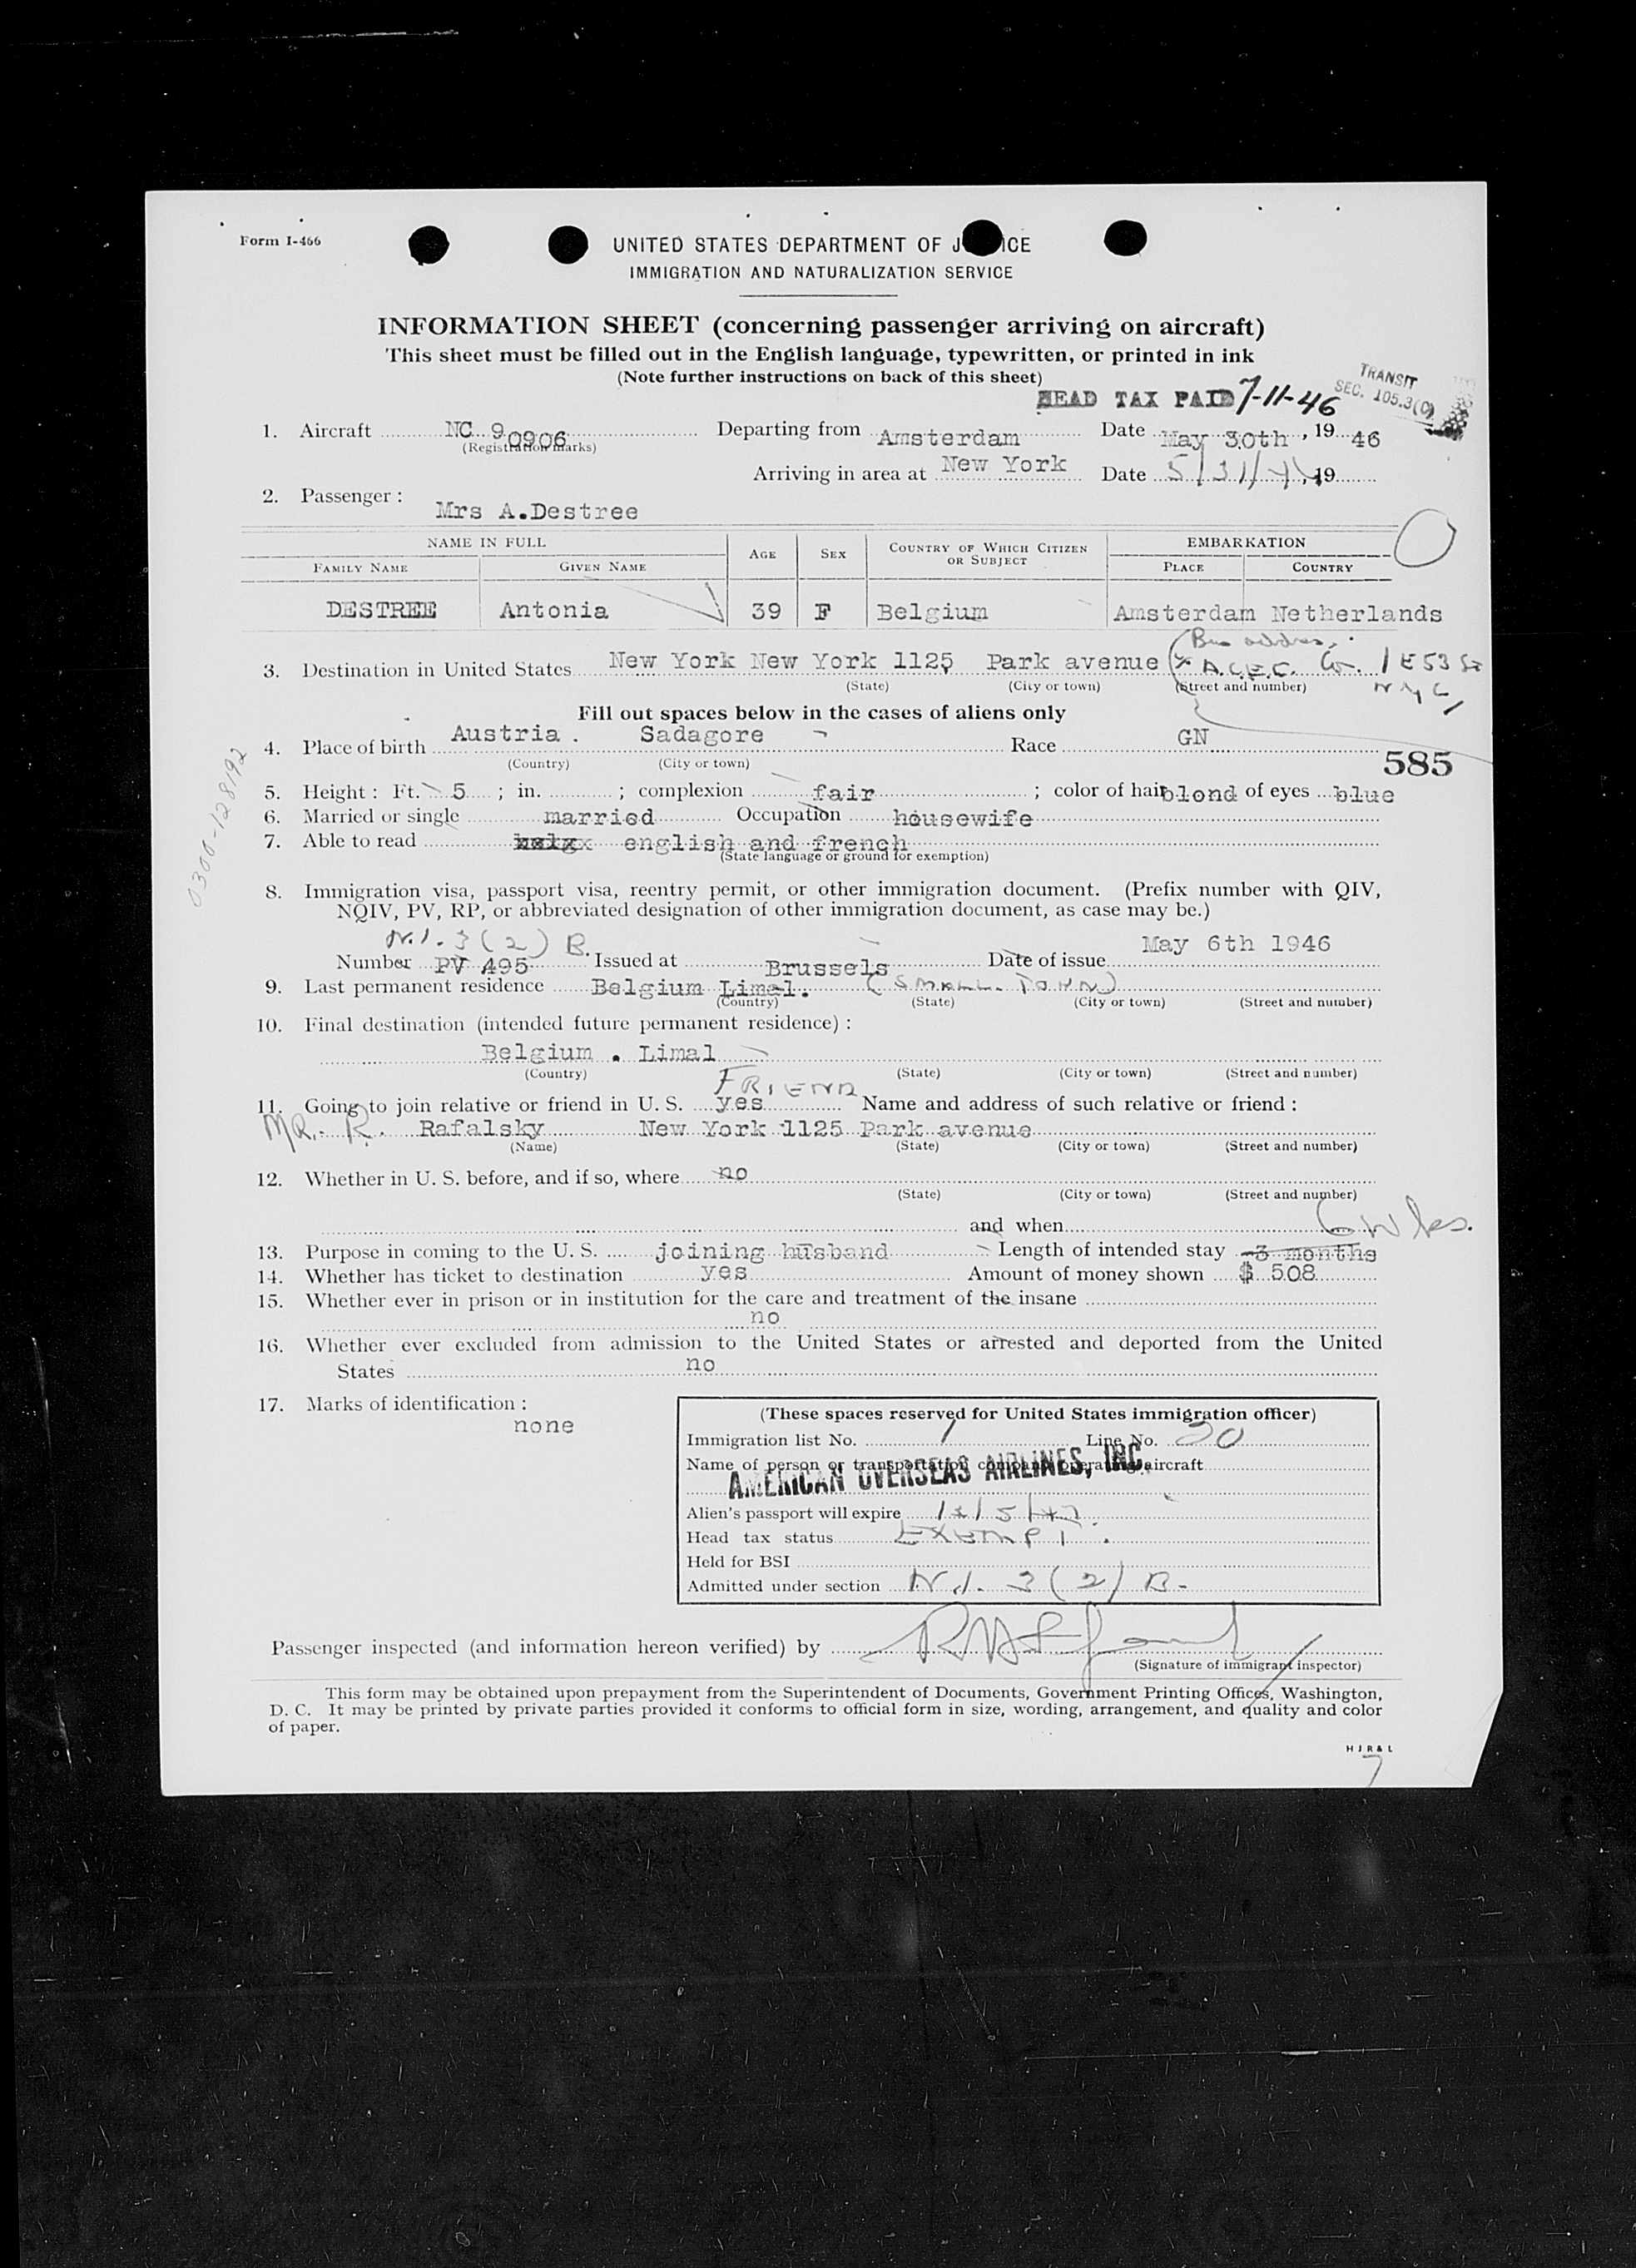 Form I-466
UNITED STATES DEPARTMENT OF J ICE
IMMIGRATION AND NATURALIZATION SERVICE
INFORMATION SHEET (concerning passenger arriving on aircraft)
This sheet must be filled out in the English language, typewritten, or printed in ink
(Note further instructions on back of this sheet)
HEAD TAX PAID 7-11-46
TRANSIT
SEC. 105.3(C)
1. Aircraft NC 90906 Departing from Amsterdam Date May 30th, 19 46
(Registration marks)
Arriving in area at New York Date 5/31/ , 19
2. Passenger :
Mrs A.Destree
NAME IN FULL AGE SEX COUNTRY OF WHICH CITIZEN OR SUBJECT EMBARKATION
FAMILY NAME GIVEN NAME PLACE COUNTRY
DESTREE Antonia 39 F Belgium Amsterdam Netherlands
Bus address,
3. Destination in United States New York New York 1125 Park avenue % A.C.E.C. Co. 1 E 53 St
(State) (City or town) (Street and number) N Y C
Fill out spaces below in the cases of aliens only
4. Place of birth Austria . Sadagore Race GN
(Country) (City or town)
585
0300-128192
5. Height : Ft. 5 ; in. ; complexion fair ; color of hair blond of eyes blue
6. Married or single married Occupation housewife
7. Able to read english and french
(State language or ground for exemption)
8. Immigration visa, passport visa, reentry permit, or other immigration document. (Prefix number with QIV,
NQIV, PV, RP, or abbreviated designation of other immigration document, as case may be.)
N.I. 3 (2) B.
Number PV 495 Issued at Brussels Date of issue May 6th 1946
9. Last permanent residence Belgium Limal. (SMALL TOWN)
(Country) (State) (City or town) (Street and number)
10. Final destination (intended future permanent residence) :
Belgium . Limal
(Country) (State) (City or town) (Street and number)
FRIEND
11. Going to join relative or friend in U. S. yes Name and address of such relative or friend :
MR. R. Rafalsky New York 1125 Park avenue
(Name) (State) (City or town) (Street and number)
12. Whether in U. S. before, and if so, where no
(State) (City or town) (Street and number)
and when
6 Wks.
13. Purpose in coming to the U. S. joining husband Length of intended stay 3 months
14. Whether has ticket to destination yes Amount of money shown $ 508
15. Whether ever in prison or in institution for the care and treatment of the insane
no
16. Whether ever excluded from admission to the United States or arrested and deported from the United
States no
17. Marks of identification :
none
(These spaces reserved for United States immigration officer)
Immigration list No. 1 Line No. 20
Name of person or transportation company operating aircraft
AMERICAN OVERSEAS AIRLINES, INC.
Alien's passport will expire
Head tax status EXEMPT.
Held for BSI
Admitted under section N.I. 3 (2) B.
Passenger inspected (and information hereon verified) by
(Signature of immigrant inspector)
This form may be obtained upon prepayment from the Superintendent of Documents, Government Printing Offices, Washington,
D. C. It may be printed by private parties provided it conforms to official form in size, wording, arrangement, and quality and color
of paper.
H J R & L
7